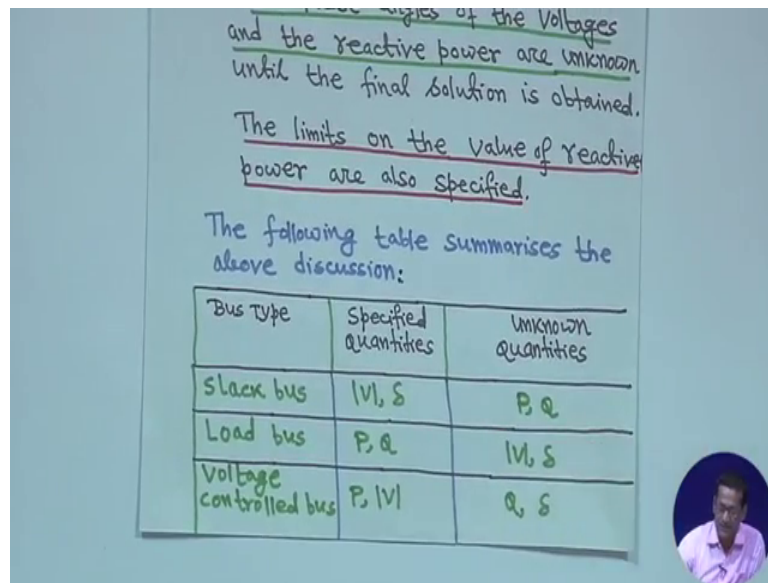 angles of the voltages
and the reactive power are unknown
until the final solution is obtained.
The limits on the value of reactive
power are also specified.
The following table summarises the
above discussion:
Bus Type
Specified
Quantities
Unknown
Quantities
Slack bus
|V|, δ
P, Q
Load bus
P, Q
|V|, δ
Voltage
controlled bus
P, |V|
Q, δ